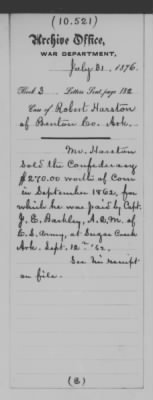 (10.521)
Archive Office,
WAR DEPARTMENT,
July 31, 1876.
Book 3 Letters Sent, page 192
Case of Robert Harston
of Benton Co. Ark.
Mr. Harston
sold the Confederacy
$270.00 worth of Corn
in September 1862, for
which he was paid by Capt.
J. E. Barkley, A.Q.M. of
C.S. Army, at Sugar Creek
Ark. Sept. 12th '62.
See his receipt
on file.